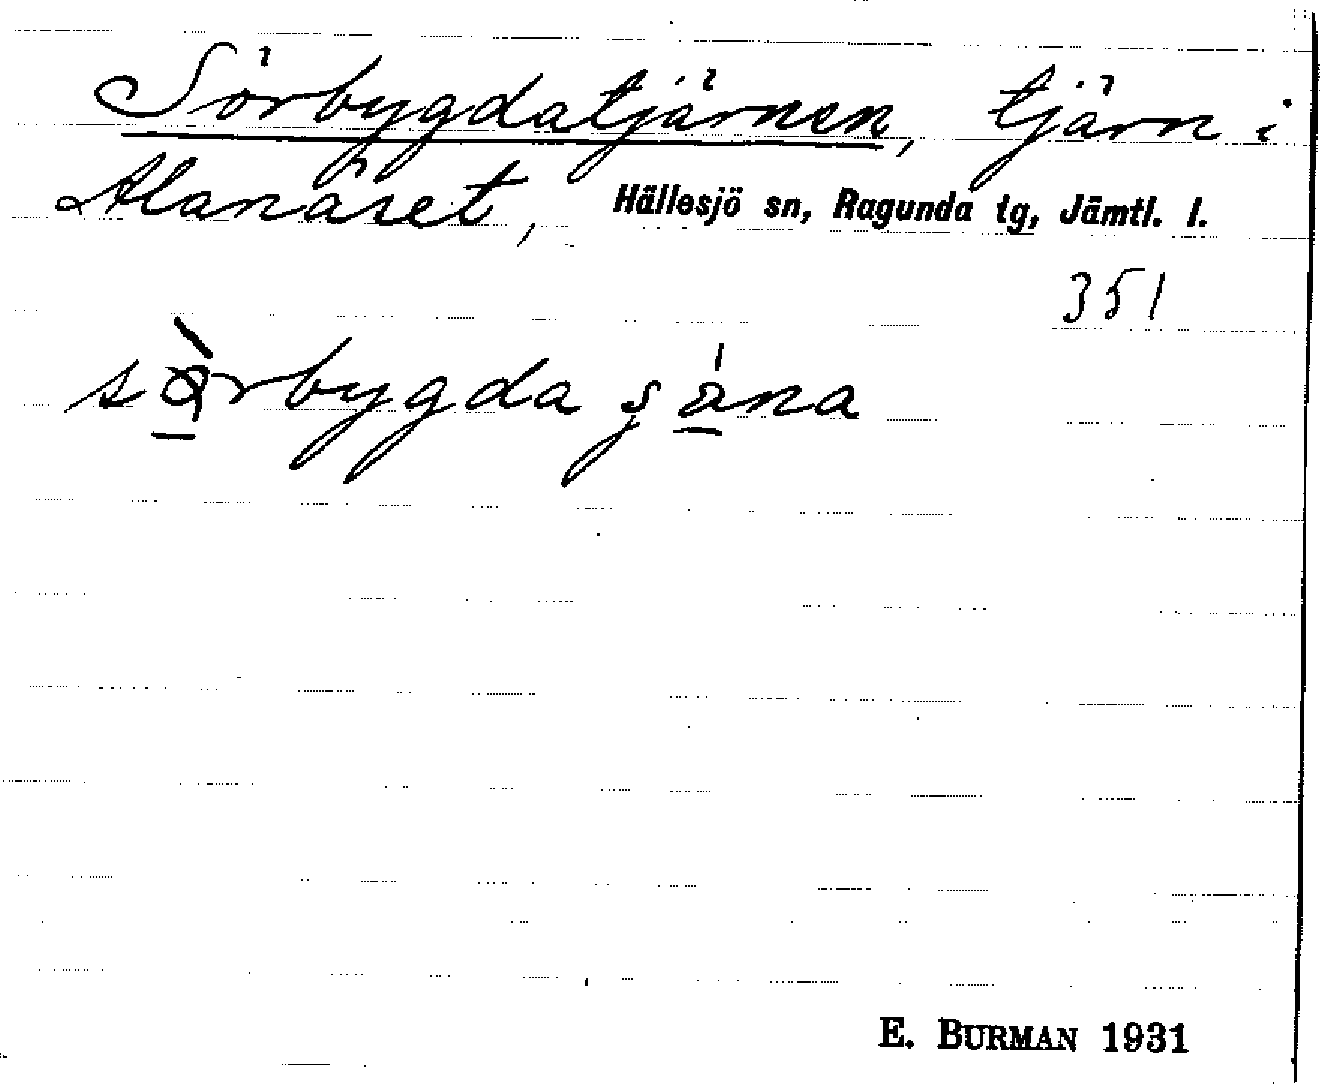 Sörbygdatjärnen, tjärn i
Alanäset, Hällesjö sn, Ragunda tg, Jämtl. l.
351
bygda
E. BURMAN 1931